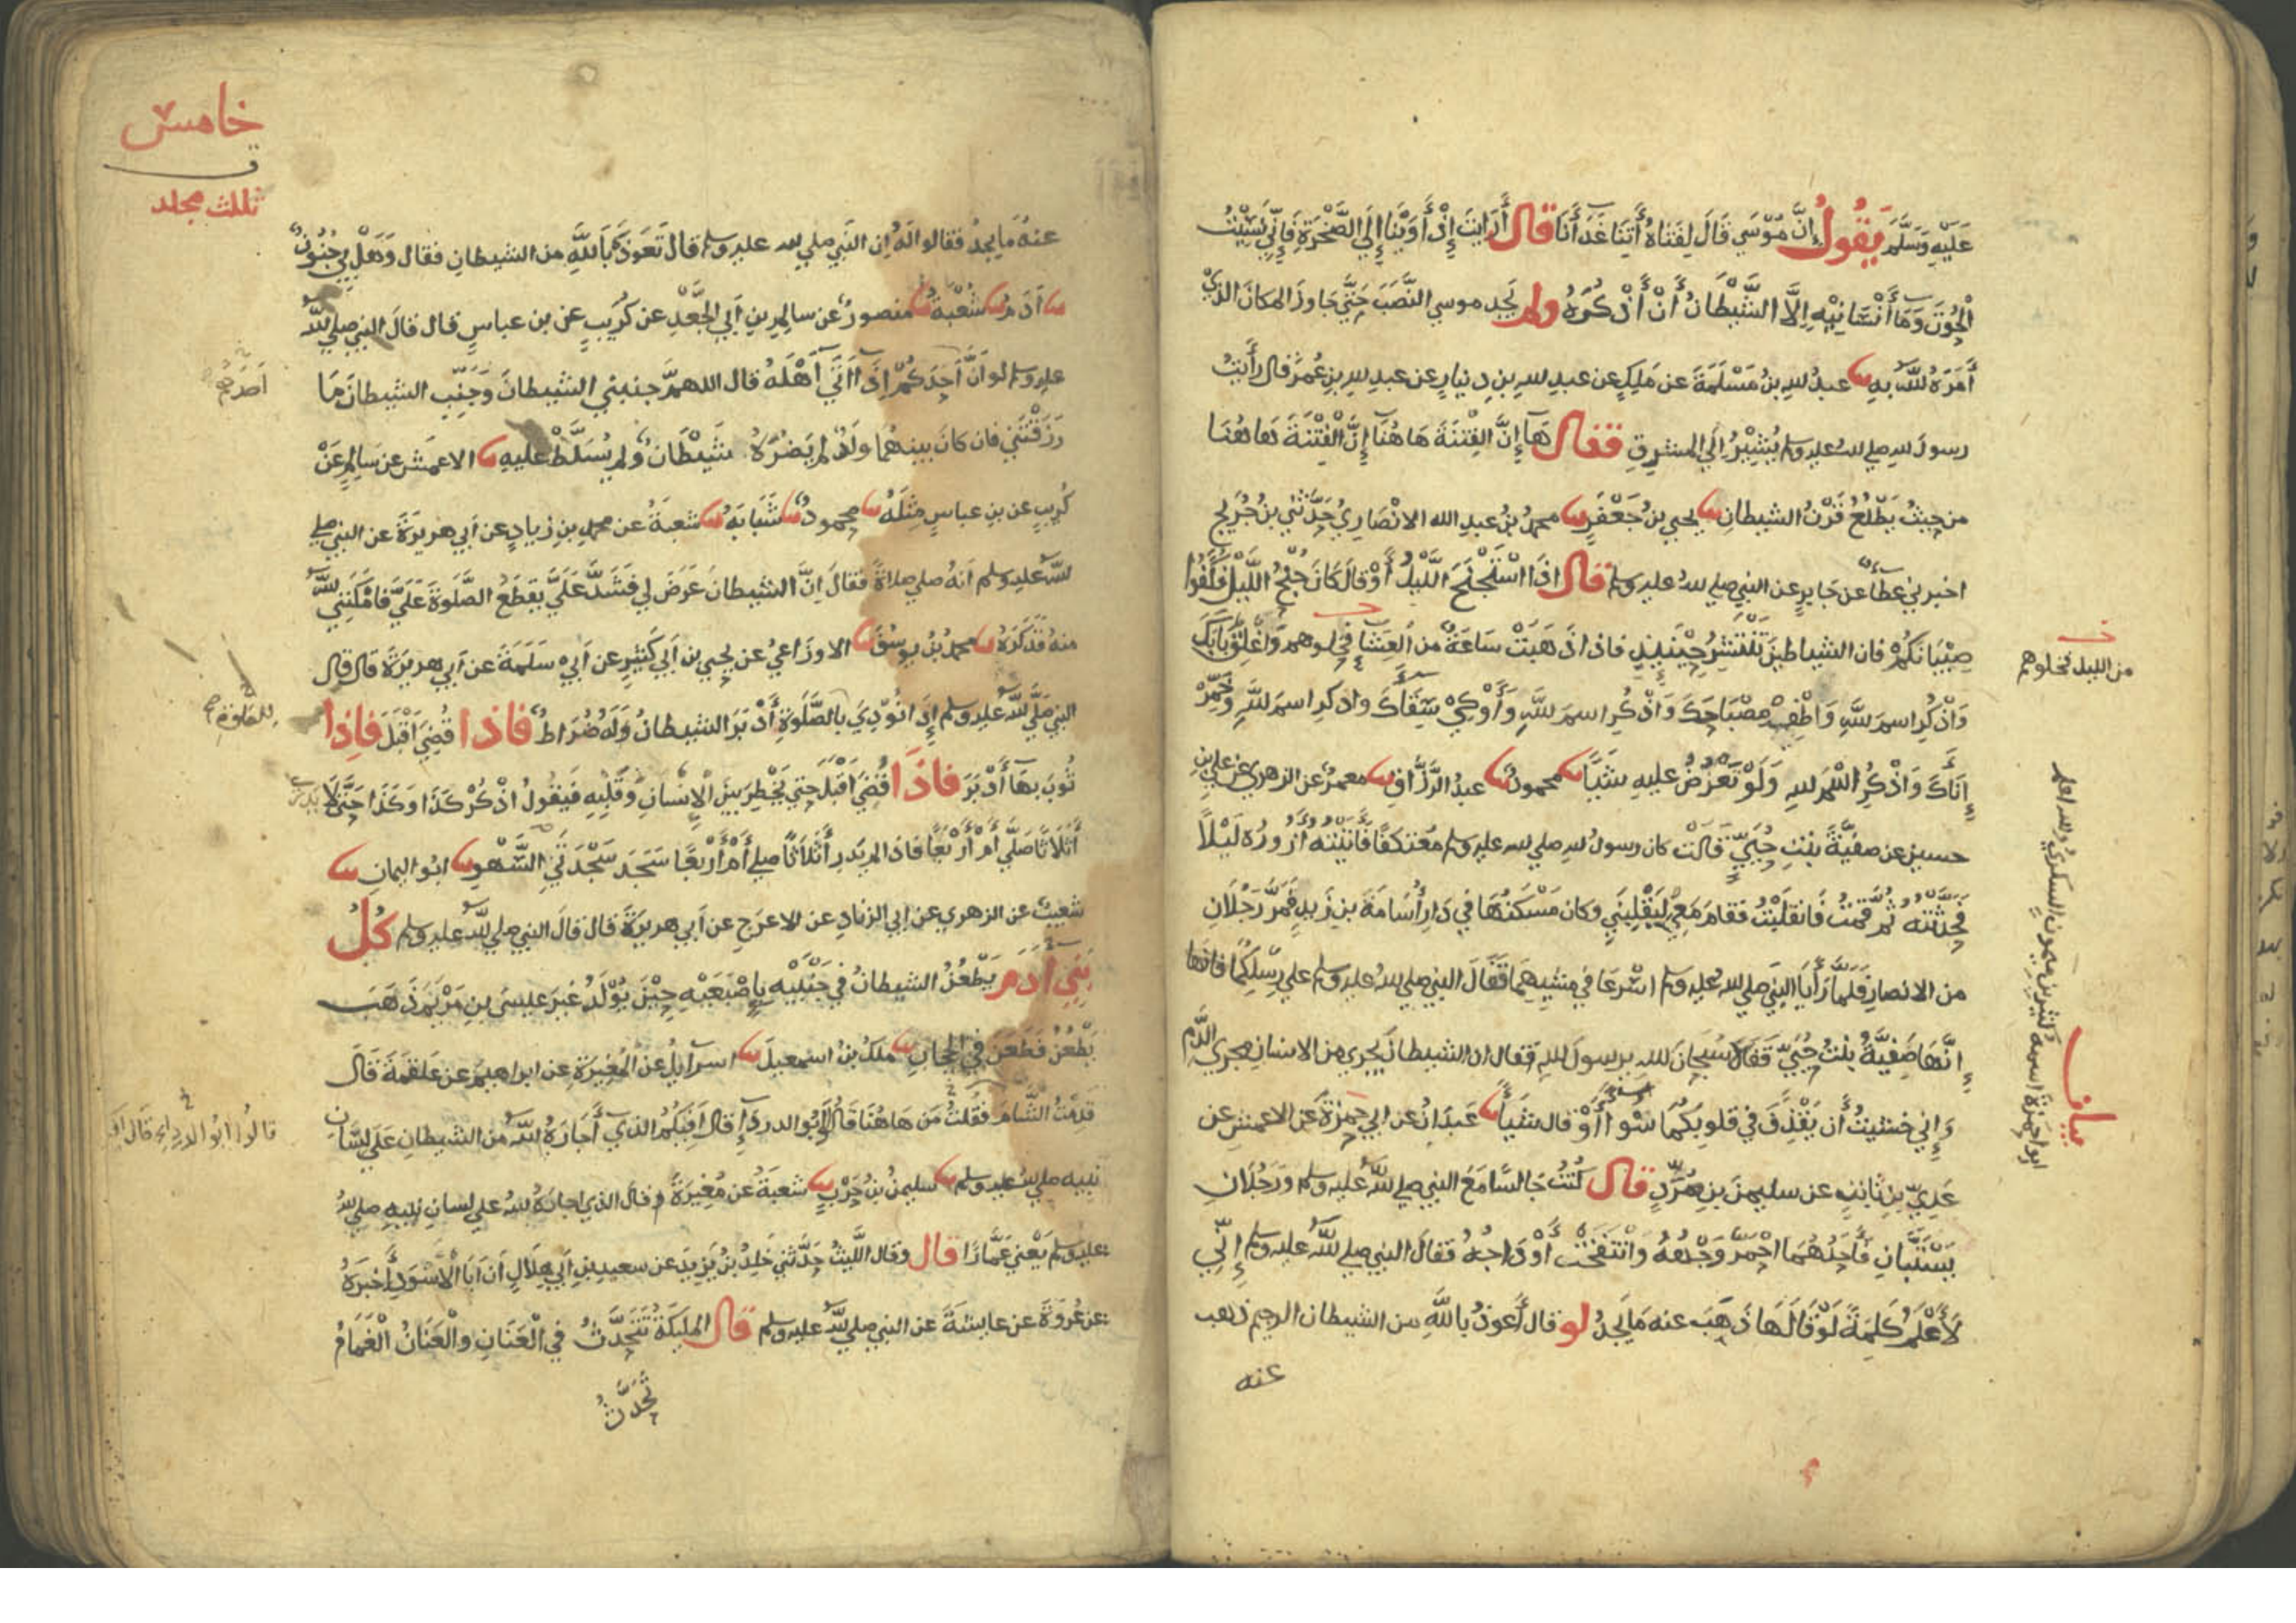 عَلَيْهِ وَسَلَّمَ يَقُولُ إِنَّ مُوْسَي قَالَ لِفَتَاهُ أَتِنَا غَدَأَنَا قال أَرَايتَ إِذْ أَوَيْنَا إِلَي الصَّخْرَةِ فَإِنِّي نَسِيْتُ
الْحُوْتَ وَمَا أَنْسَانِيْهِ إِلَّا الشَّيْطَانُ أَنْ أَذْكُرَهُ ولم يَجِد موسي النَّصَبَ حَتَّي جَاوَزَ المكانَ الذي
أَمَرَهُ اللَّهُ بِهِ عبدُ اللهِ بنُ مَسْلَمَةَ عن مَلِيكٍ عن عبدِ اللهِ بنِ دِنيارٍ عن عبدِ اللهِ بنِ عُمَرَ قال رأيتُ
رسولَ اللهِ صلي الله عليه وسلم يُشِيْرُ إِلَي المشرِقِ فقال هَا إِنَّ الفِتْنَةَ هَاهُنَا إِنَّ الْفِتْنَةَ هاهُنَا
من حيثُ يَطْلُعُ قَرْنُ الشيطانِ يحيي بنُ جَعْفَرٍ محمدُ بنُ عبدِ الله الانْصَارِيُ حَدَّثَنِي بنُ جُرَيْجٍ
اخبرني عطاءٌ عن جَابِرٍ عن النبيِ صلي اللهُ عليه وسلم قال اذَا اسْتَجْنَحَ اللَّيْلُ أَوْ قَالَ كَانَ جُنْحُ اللَّيْلِ فَكُفُّوا
صِبْيَانَكُمْ فان الشياطينَ تَنْتَشِرُ حِيْنَئِذٍ فاذا ذَهَبَتْ سَاعَةٌ من العِشَاءِ فخلوهم وَاغْلِقْ بَابَكَ
وَاذْكُرِ اسمَ اللَّهِ وَاَطْفِئْ مِصْبَاحَكَ وَاذْكُرِ اسمَ اللَّهِ وَأَوْكِيْ سِقَاءَكَ واذكرِ اسمَ اللهِ وَخَمِّرْ
إِنَاءَكَ وَاذْكُرِ اسْمَ اللهِ وَلَوْ تَعْرُضُ عليهِ شَيْئًا محمودٌ عبدُ الرَّزَّاقِ معمرٌ عن الزهري عن علي بنِ
حسينٍ عن صفيَّةَ بنتِ حُيَيٍّ قَالَتْ كان رسولُ اللهِ صلي الله عليه وسلم مُعْتَكفًا فَاتَيْتُه أزُورُه لَيْلًا
فَحَدَّثْتُهُ ثُمَّ قُمْتُ فَانقَلَبْتُ فقامَ مَعِيْ لِيَقْلِبَنِي وكان مَسْكَنُهَا فِي دَارِ أُسَامَةَ بنِ زَيدٍ فَمَرَّ رَجُلَانِ
من الانصارِ فَلَمَّا رَأَيَا النبيَ صلي اللهُ عليه وسلم اسْرعَا في مشيِهِمَا فَقَالَ النبي صلي اللهُ عليه وسلم علي رِسْلِكُمَا فانها
إِنَّهَا صَفِيَّةُ بنتُ حُيَيٍّ فَقَالَا سُبْحَانَ اللهِ يرسولَ اللهِ فقال ان الشيطانَ يَجْرِي من الانسانِ مجري الدَّمِ
وَإِنِي خشيتُ أَن يَقْذِفَ في قلوبِكُمَا سُوءًا أَوْ قال شَيْئًا عبدَانُ عن ابي حمزةَ عن الاعمشِ عن
عَدِيِّ بنِ ثابتٍ عن سليمنَ بنِ صُرَدٍ قال كُنْتُ جَالسًا مَعَ النبيِ صلي اللهُ عليه وسلم وَرَجُلَانِ
يَسْتَبَّانِ فَأَحَدُهُمَا احْمَرَّ وَجْهُهُ وَانْتَفَخَتْ أَوْدَاجُهُ فَقالَ النبي صلي اللهُ عليه وسلم إِنِّي
لَأَعْلَمُ كَلِمَةً لَوْ قَالَهَا ذَهَبَ عنه مَا يَجِدُ لو قال أَعُوذُ بِاللَّهِ من الشيطان الرجيم ذهب
عنه
من الليل فخلوهم
ابو حمزة اسمه
بن ميمون السكري والله اعلم
بيان
خامس
ثلث مجلد
عنهُ مَا يجدُ فقالوا لَهُ اِن النَّبي صلي الله عليه وسلم قالَ تَعَوَّذْ بِاَللَّهِ من الشيطانِ فقال وَهَلْ بِيْ جُنُونٌ
آدَمُ شُعْبَةُ منصورٌ عن سالمِ بنِ أَبي الجَعْدِ عن كُرَيبٍ عن بنِ عباسٍ قال قالَ النبي صلي اللهُ
عليه وسلم لو اَنَّ أَحَدَكُمْ إِذَا أَتَي أَهْلَهُ قال اللهمَّ جنبني الشيطانَ وَجَنِّبِ الشيطانَ مَا
رَزَقْتَنِي فان كانَ بينهُما ولَدٌ لم يَضُرَّهُ شَيْطَانٌ وَلم يُسَلَّطْ عليهِ الاعمَش عن سَالِمٍ عَنْ
كُرَيبٍ عن بنِ عباسٍ مِثْلَهُ محمودٌ شَبَابَةُ شعبةُ عن محمدِ بنِ زيادٍ عن أبي هريرَةَ عن النبي صلي
اللهُ عليه وسلم انهُ صلي صلاةً فَقالَ اِنَّ الشيطانَ عَرَضَ لي فَشَدَّ عَلَيَّ يقطَعُ الصَّلَوةَ عَلَيَّ فامْكَنَنِي اللهُ
منهُ فَذَكَرَهُ محمدُ بنُ يوسُفَ الاوزَاعِيُ عن يحيي بن أبي كثيرٍ عن أَبِيْ سَلَمَةَ عن أبي هريرَةَ قال قال
النبي صلي اللهُ عليه وسلم إِذَا نُوْدِيَ بالصَّلَوةِ أَدْبَرَ الشيطانُ وَلَهُ ضُرَاطٌ فاذا قُضِيَ اَقْبَلَ فاذا
ثُوِّبَ بِهَا أَدْبَرَ فاذا قُضِيَ اَقْبَلَ حَتي يَخْطِرَ بينَ الْإِنْسَانِ وَقَلْبِهِ فَيَقُولُ اذْكُرْ كَذَا وَكَذَا حَتَّي لَا يدري
أَثَلَاثًا صَلَّي أَمْ أَرْبَعًا فَاذا لم يَدرِ أَثَلَاثًا صلي أَمْ أَرْبَعًا سَجَدَ سَجْدَتَي السَّهْوِ ابو اليمانِ
شعيبٌ عن الزهري عن ابي الزنادِ عن الاعرجِ عن أبي هريرَةَ قال قالَ النبي صلي اللهُ عليه وسلم كُلُّ
بَنِي آدَمَ يَطْعُنُ الشيطانُ في جَنْبَيْهِ بِاصْبَعَيْهِ حِيْنَ يُوْلَدُ غَيرَ عيسَي بنِ مَرْيَمَ ذَهَبَ
يَطْعُنُ فَطَعَنَ فِي الحجابِ ملكُ بنُ اسمعيلَ اسرَائيلُ عن المُغِيرَةِ عن ابراهيمَ عن عَلقمةَ قَالَ
قدِمْتُ الشَّامَ فقلتُ مَن هَاهُنَا قالوا أبو الدرداءِ قال أَفِيكُم الذي أَجَارَهُ اللهُ من الشيطانِ عَلَي لِسَانِ
نبيه صلي اللهُ عليه وسلم سليمنُ بنُ حَرْبٍ شعبَةُ عن مُغِيرَةَ وقالَ الذي اجارَهُ اللهُ علي لسانِ نبيهِ صلي الله
عليه وسلم يَعْنِي عَمَّارًا قال وقال اللَّيثُ حَدَّثَنِي خَلِدُ بنُ يَزِيدَ عن سعيدِ بنِ أَبي هِلَالٍ أَن أَبَا الْأَسْوَدِ أَخْبَرَهُ
عن عُروَةَ عن عايشَةَ عن النبي صلي اللهُ عليه وسلم قال المليكَةُ تَتَحَدَّثُ فِي الْعَنَانِ والْعَنَانُ الْغَمَامُ
تَحَدَّثُ
قالوا ابو الدرداء قال